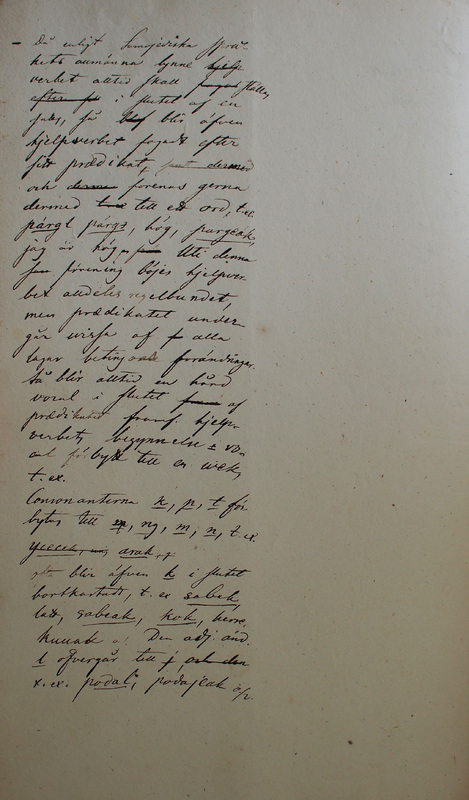 Då enligt Samojediska språ-
kets allmänna lynne
verbet alltid skall ställas
i slutet af en
sats, så blir äfven
hjelpverbet fogadt efter
sitt prædikat,
och förenas gerna
dermed till ett ord, t. ex.
pärgt, pärgs, hög, pargeak,
jag är hög. Uti denna
förening böjes hjelpver-
bet alldeles regelbundet,
men prædikatet under-
går vissa af alla
lagar betingade förändringar.
Så blir alltid en hård
vocal i slutet af
prædikatet framf. hjelp-
verbets begynnelse vo-
cal förbytt till en vek,
t. ex.
Consonanterna k, p, t för-
bytas till ng, m, n, t. ex.
arak
ofta blir äfven k i slutet
bortkastadt, t. ex. sabek
latt, sabeak, kok, herre,
kuuak Den adj. änd.
l öfvergår till j,
t. ex. podal, podajeak